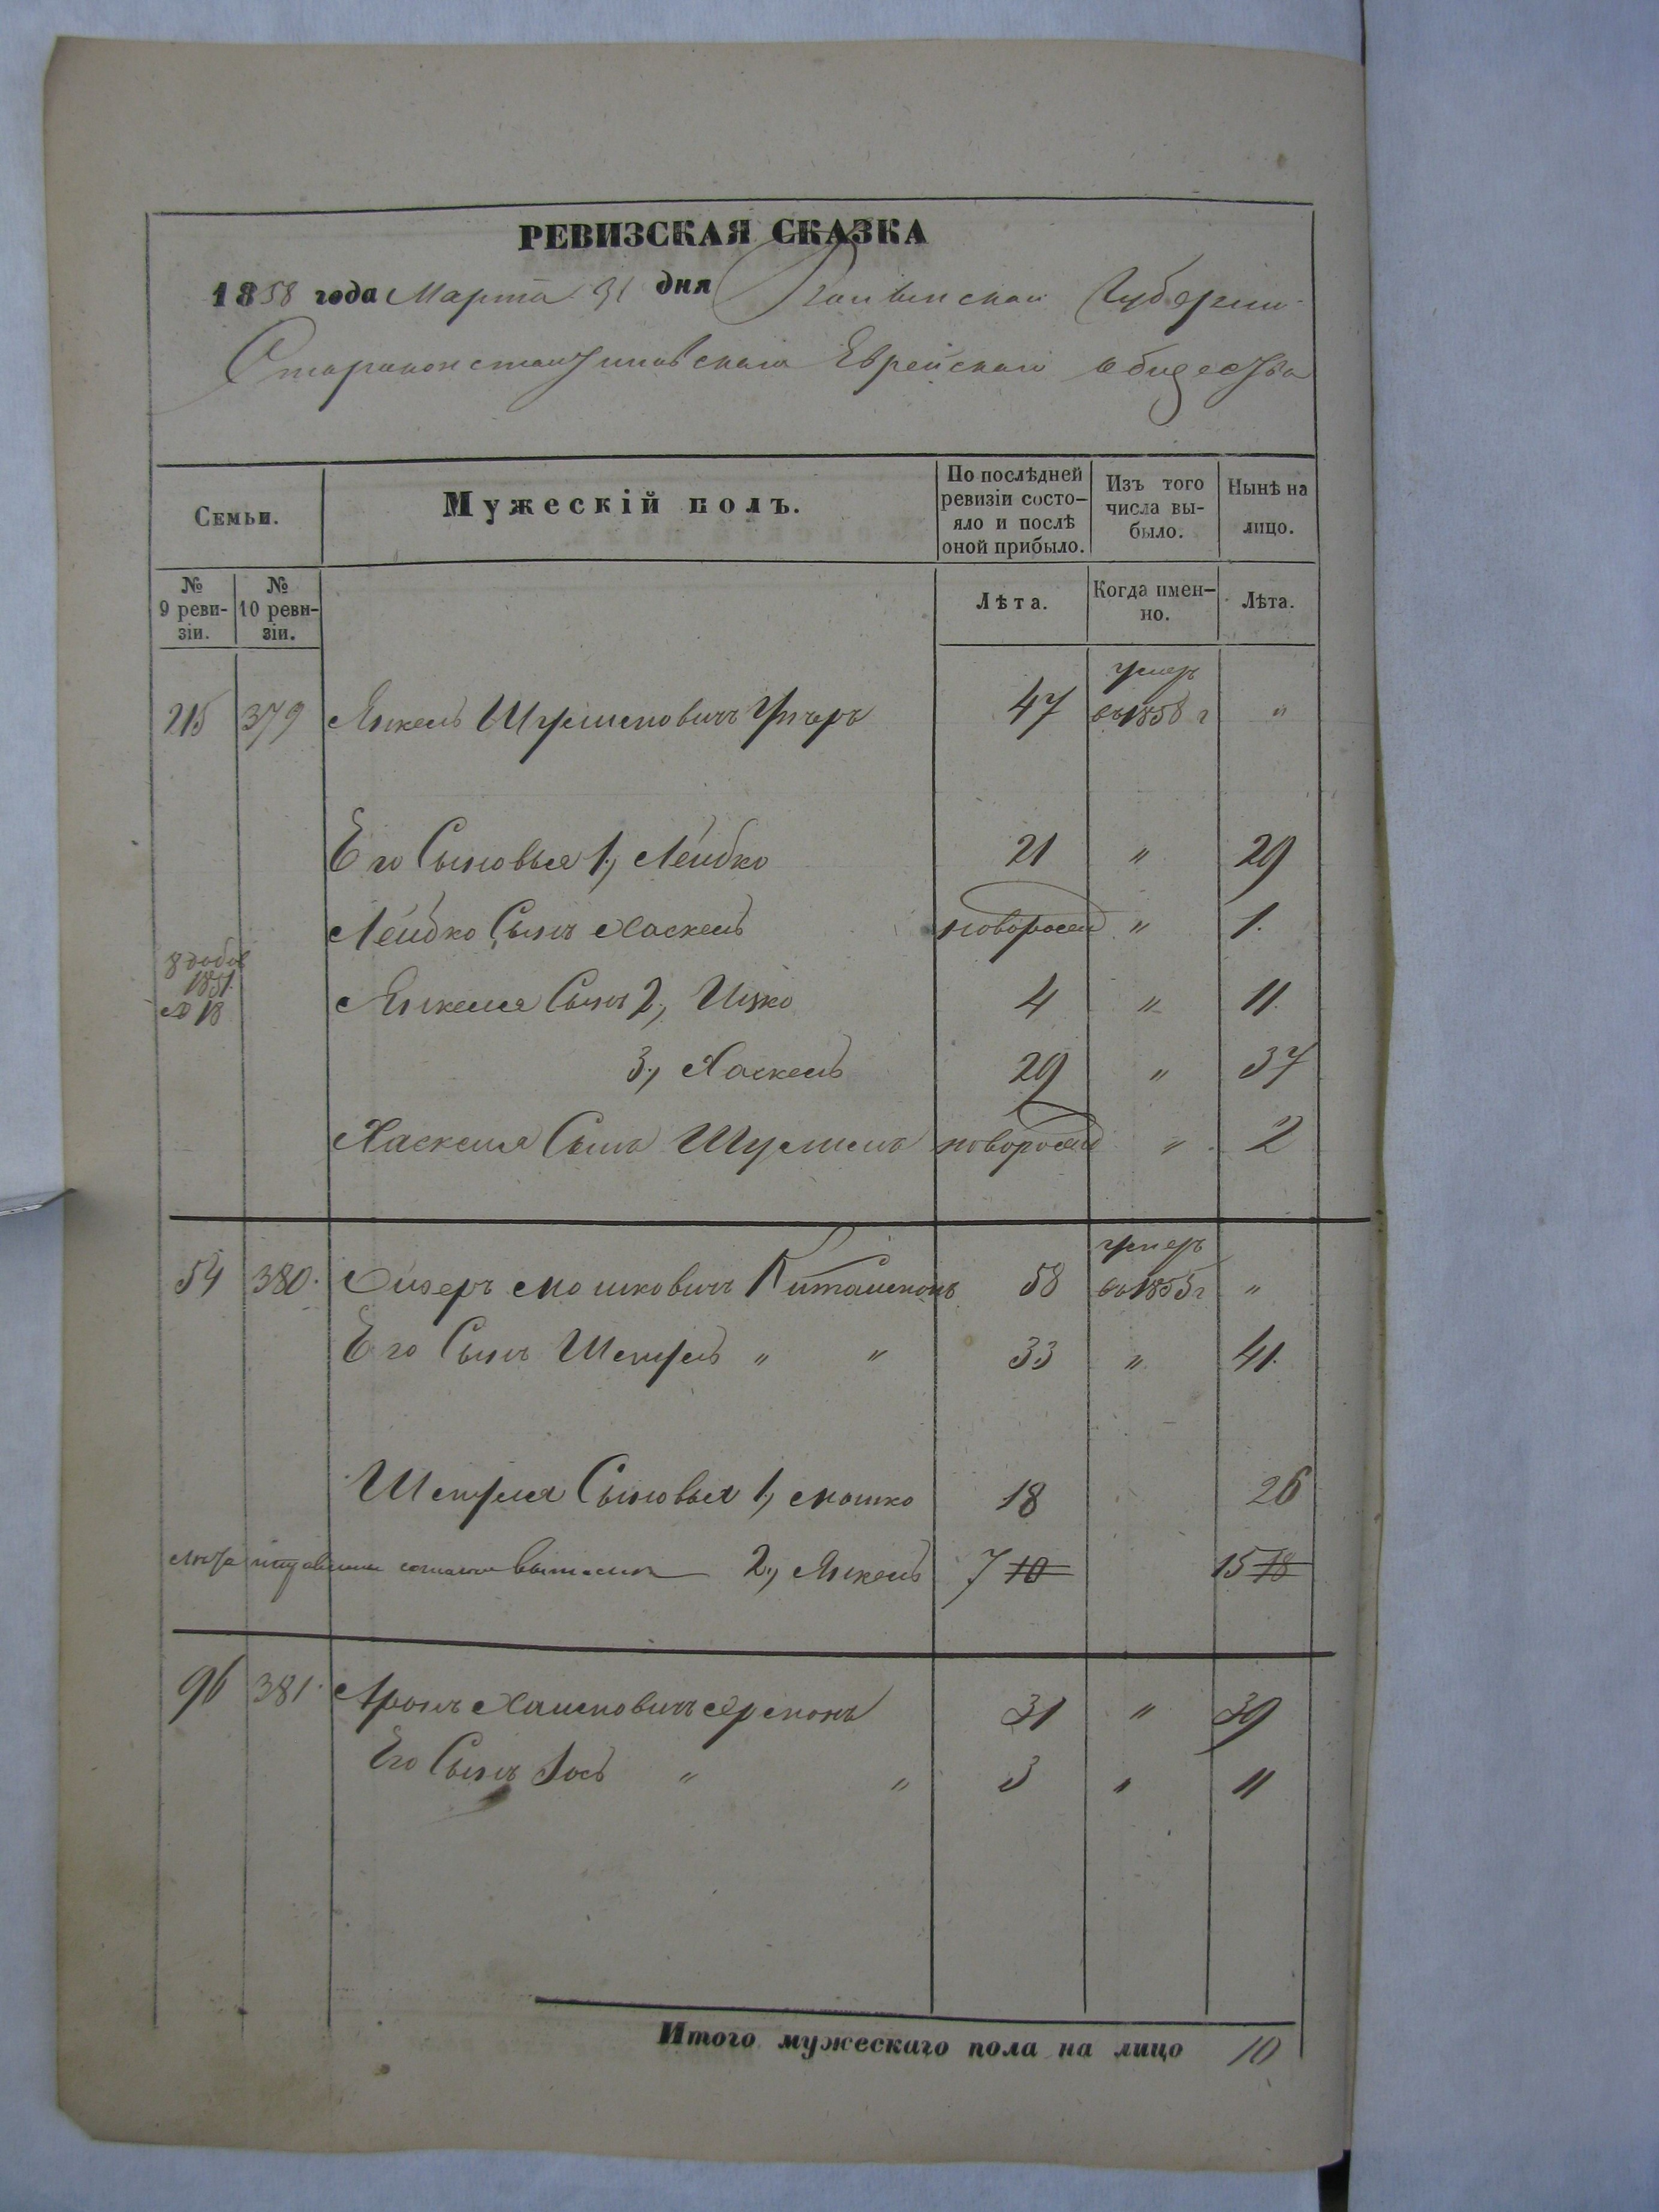 РЕВИЗСКАЯ СКАЗКА
1858 года Марта 31 дня Волынской Губернии
Староконстантиновскаго Еврейскаго общества
Семьи.
Мужескій полъ.
По послѣдней ревизіи состо-
яло и послѣ
оной прибыло.
Изъ того
числа вы-
было.
Нынѣ на
лицо.
№
9 реви-
зіи.
№
10 реви-
зіи.
Лѣта.
Когда имен-
но.
Лѣта.
умеръ
215 379 Янкель Шулимовичъ 47 въ 1858 г "
Его Сыновья 1, Лейбко 21 " 29
Лейбко Сынъ Хаскель новорожд " 1.
1851.
№ 18
Янкеля Сынъ 2, Ицко 4 " 11.
3, Хаскель 29 " 37
Хаскеля Сынъ Шулимъ новорожд " 2
умеръ
54 380. Мошковичъ 58 въ 1855 г "
Его Сынъ " " 33 " 41.
Сыновья 1, Мошко 18 26
2, Янкель 7 10 15 18
96 381. Аронъ 31 " 39
Его Сынъ Іось " " 3 " 11
Итого мужескаго пола на лицо 10